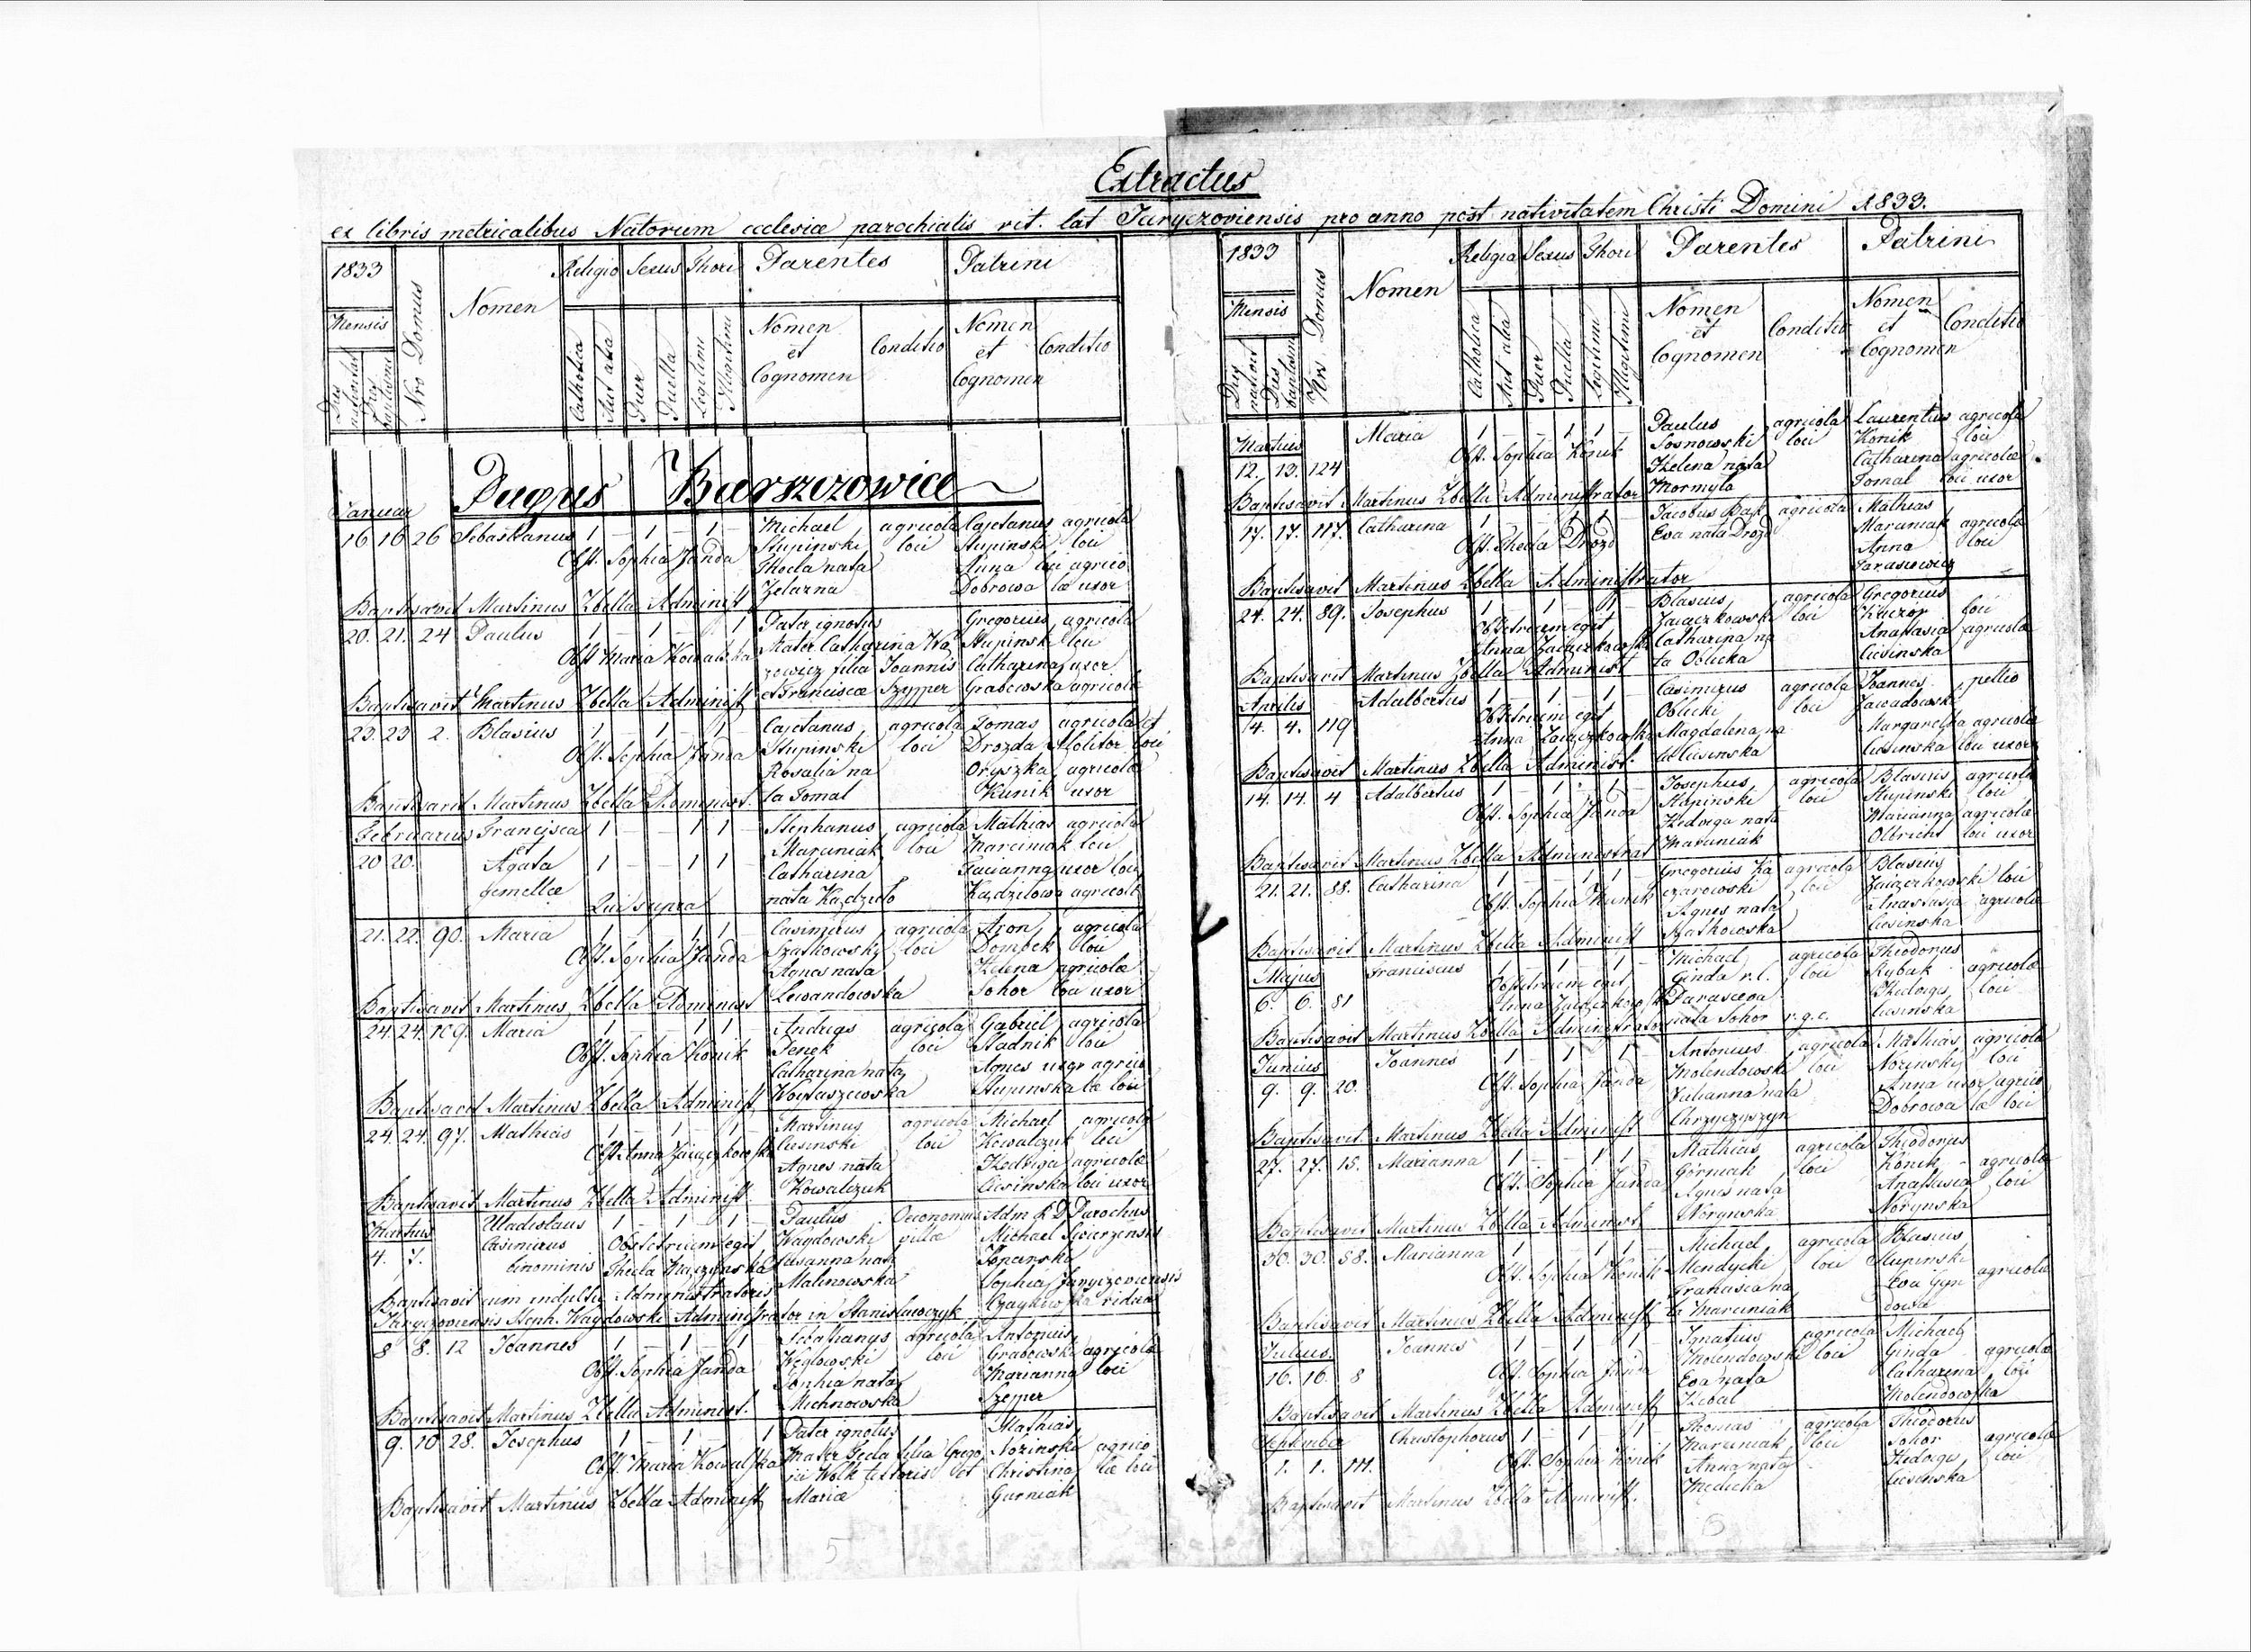 Extractus
ex libris metricalibus Natorum ecclesiæ parochialis rit. lat Jaryczoviensis pro anno post nativitatem Christi Domini 1833.
1833 Nro Domus Nomen Religio Sexus Thori Parentes Patrini
Mensis Catholica Aut alia Puer Puella Legitimi Illegitimi Nomen et Cognomen Conditio Nomen et Cognomen Conditio
Dies nativitatis Dies baptismi
Pagus Barszczowice
Januar
16 16 26 Sebastianus 1 – 1 – 1 – Michael agricola Cajetanus agricola
Obst. Sophia Janda Stupinski loci Stupinski loci
Thecla nata Anna loci agrico
Zelazna Dobrowa læ uxor
Baptisavit Martinus Zbella Administ
20. 21. 24 Paulus 1 – 1 – – 1 Pater ignotus Gregorius agricola
Obst Maria Kowalska Mater Catharina Stupinski loci
filia Joannis Catharina uxor
et Franciscæ Szypper Grabowska agricolæ
Baptisavit Martinus Zbella Administ
23. 23 2. Blasius 1 – 1 – 1 – Cajetanus agricola Tomas agricola et
Obst. Sophia Janda Stupinski loci Drozda Molitor loci
Rosalia na Oryszka agricolæ
ta Tomal Kunik uxor
Baptisavit Martinus Zbella Administ.
Februarius Francisca 1 – – 1 1 – Stephanus agricola Mathias agricola
et Marciniak loci Marciniak loci
20 20. Agata 1 – – 1 1 Catharina uxor loci
gemellæ nata Kądzioło agricolæ
Qui supra
21. 22. 90. Maria 1 – – 1 1 – Casimirus agricola Aron agricola
Obst. Sophia Janda Szatkowski loci Dombek loci
Agnes nata Helena agricolæ
Lewandowska Sokor loci uxor
Baptisavit Martinus Zbella Administ
24. 24. 109. Maria 1 – – 1 1 – Andreas agricola Gabriel agricola
Obst. Sophia Konik Penek loci Stadnik loci
Catharina nata Agnes uxor agrico
Wojtaszewska Stupinska læ loci
Baptisavit Martinus Zbella Administ
24. 24. 97. Mathias 1 – 1 – 1 – Martinus agricola Michael agricola
Obst Anna Zaiączkowska Ciesinski loci Kowalczuk loci
Agnes nata Hedviga agricolæ
Kowalczuk Ciesinska loci uxor
Baptisavit Martinus Zbella Administ
Martius Uladislaus 1 – 1 – 1 – Paulus Oeconomus Adm R D Parochus
4. 7. Casimirus Obstetricem egit Waydowski villæ Michael
binominis Thecla Susanna nata
Malinowska Sophia Jaryczoviensis
Baptisavit cum indultu Administratoris
Jaryczoviensis Waydowski Administrator in Stanislawczyk
8 8. 12 Joannes 1 – 1 – 1 Sebastianus agricola Antonius
Obst. Sophia Janda Węglowski loci Grabowski agricolæ
Sophia nata Marianna loci
Michnowska Szepper
Baptisavit Martinus Zbella Administ.
9. 10 28. Josephus 1 – 1 – – 1 Pater ignotus Mathias
Obst. Maria Kowalska Mater Tecla filia Grego Nozinski agrico
rii Wolk textoris et Christina læ loci
Mariæ Gurniak
Baptisavit Martinus Zbella Administ
5
1833 Nro Domus Nomen Religio Sexus Thori Parentes Patrini
Mensis Catholica Aut alia Puer Puella Legitimi Illegitimi Nomen et Cognomen Conditio Nomen et Cognomen Conditio
Dies nativit Dies baptismi
Martius Maria 1 – – 1 1 – Paulus agricola Laurentius agricola
12. 13. 124 Obst. Sophia Konik Sosnowski loci Konik loci
Helena nata Catharina agricolæ
Mormyla Tomal loci uxor
Baptisavit Martinus Zbella Administrator
17. 17. 117. Catharina 1 – – 1 1 – Jacobus Bąk agricola Mathias
Obst. Thecla Drozd Eva nata Drozd Marciniak agricolæ
Anna loci
Tarasiewicz
Baptisavit Martinus Zbella Administrator
24. 24. 89. Josephus 1 – 1 – 1 – Blasius agricola Gregorius
Obstetricem egit Zaiączkowski loci loci
Anna Zaiączkowska Catharina na Anastasia agricolæ
ta Oblicka Ciesinska
Baptisavit Martinus Zbella Administ
Aprilis Adalbertus 1 – 1 – 1 – Casimirus agricola Joannes pellio
14. 4. 119 Obstetricem egit Oblicki loci Zawadowski
Anna Zaiączkowska Magdalena na Margaretha agricolæ
Ciesinska Ciesinska loci uxor
Baptisavit Martinus Zbella Administ.
14. 14. 4 Adalbertus 1 – 1 – 1 – Josephus agricola Blasius agricola
Obst. Sophia Janda Stupinski loci Stupinski loci
Hedviga nata Marianna agricolæ
Marciniak Olbricht loci uxor
Baptisavit Martinus Zbella Administrat
21. 21. 88. Catharina 1 – – 1 1 – Gregorius Ka agricola Blasius
Obst. Sophia Kunik czarowski loci Zaiączkowski loci
Agnes nata Anastasia agricolæ
Szatkowska Ciesinska
Baptisavit Martinus Zbella Administ
Majus Franciscus 1 – 1 – 1 – Michael agricola Theodorus
6. 6. 81 Obstetricem egit Ginda r.l. loci Rybak agricolæ
Anna Zaiączkowska Parasceva Hedviga loci
nata Sokor r.g.c. Ciesinska
Baptisavit Martinus Zbella Administrator
Junius Joannes 1 – 1 – 1 Antonius agricola Mathias agricola
9. 9. 20. Obst. Sophia Janda Molendowski loci Nozinski loci
Julianna nata Anna uxor agrico
Chrzyczyszyn Dobrowa læ loci
Baptisavit Martinus Zbella Administ
27. 27. 15. Marianna 1 – – 1 1 Mathias agricola Theodorus
Obst. Sophia Janda Górniak loci Konik agricolæ
Agnes nata Anastasia loci
Norynska Norynska
Baptisavit Martinus Zbella Administ
30. 30. 58. Marianna 1 – – 1 1 Michael agricola Blasius
Obst. Sophia Konik Mendycki loci Stupinski
Francisca na Eva Gyn agricolæ
ta Marciniak dowa
Baptisavit Martinus Zbella Administ
Julius. Joannes 1 – 1 – 1 Ignatius agricola Michael
16. 16. 8 Obst. Sophia Janda Molendowski loci Ginda agricolæ
Eva nata Catharina loci
Molendowska
Baptisavit Martinus Zbella Administ
September Christophorus 1 – 1 – 1 Thomas agricola Theodorus
1. 1. 111. Obst. Sophia Konik Marciniak loci Sokor agricolæ
Anna nata Hedviga loci
Medicka Ciesinska
Baptisavit Martinus Zbella Administ.
6